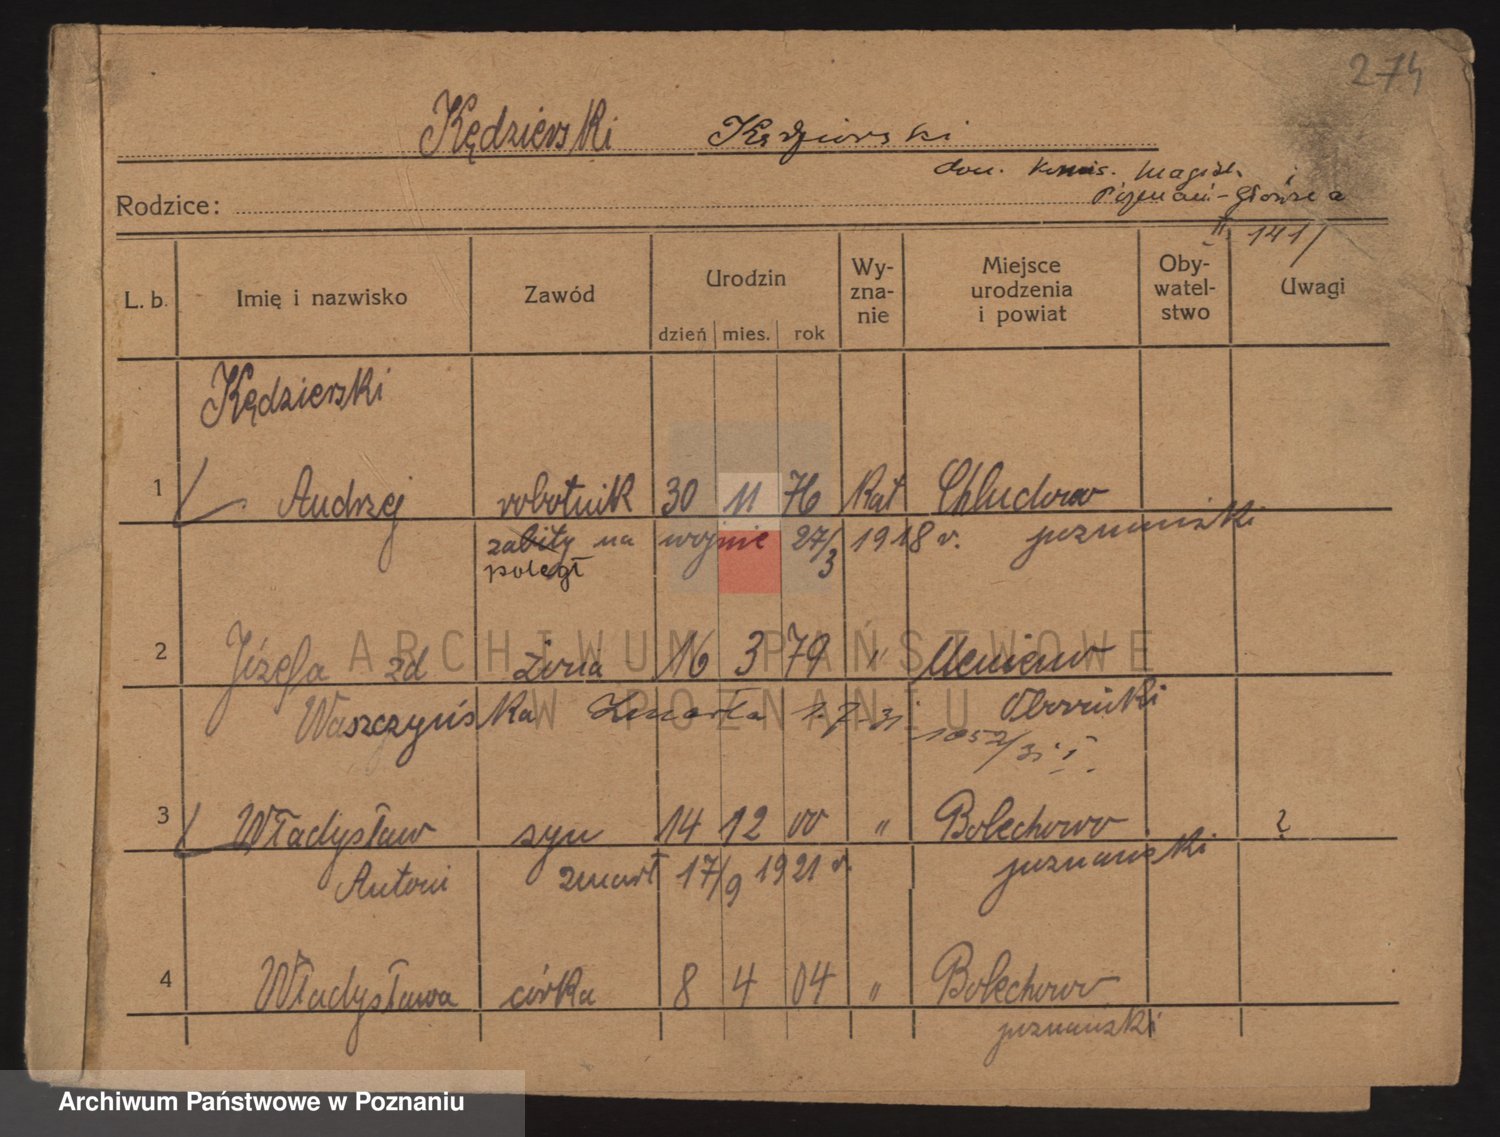 274
Kędzierski Kędziorski
don. Komis. Magistr. i
Poznań-Główna
II 141/
Rodzice:
L. b. Imię i nazwisko Zawód Urodzin Wy-zna-nie Miejsce urodzenia i powiat Oby-watel-stwo Uwagi
dzień mies. rok
Kędzierski
1 Andrzej robotnik 30 11 76 Kat Chludowo
zabity na wojnie 27/3 1918 r. poznański
poległ
2 Józefa zd żona 16 3 79 "
Waszczyńska Zmarła 1.7.31 Oborniki
1057/31 I
3 Władysław syn 14 12 00 " Bolechowo ?
Antoni zmarł 17/9 1921 r. poznański
4 Władysława córka 8 4 04 " Bolechowo
poznański
ARCHIWUM PAŃSTWOWE
W POZNANIU
Archiwum Państwowe w Poznaniu